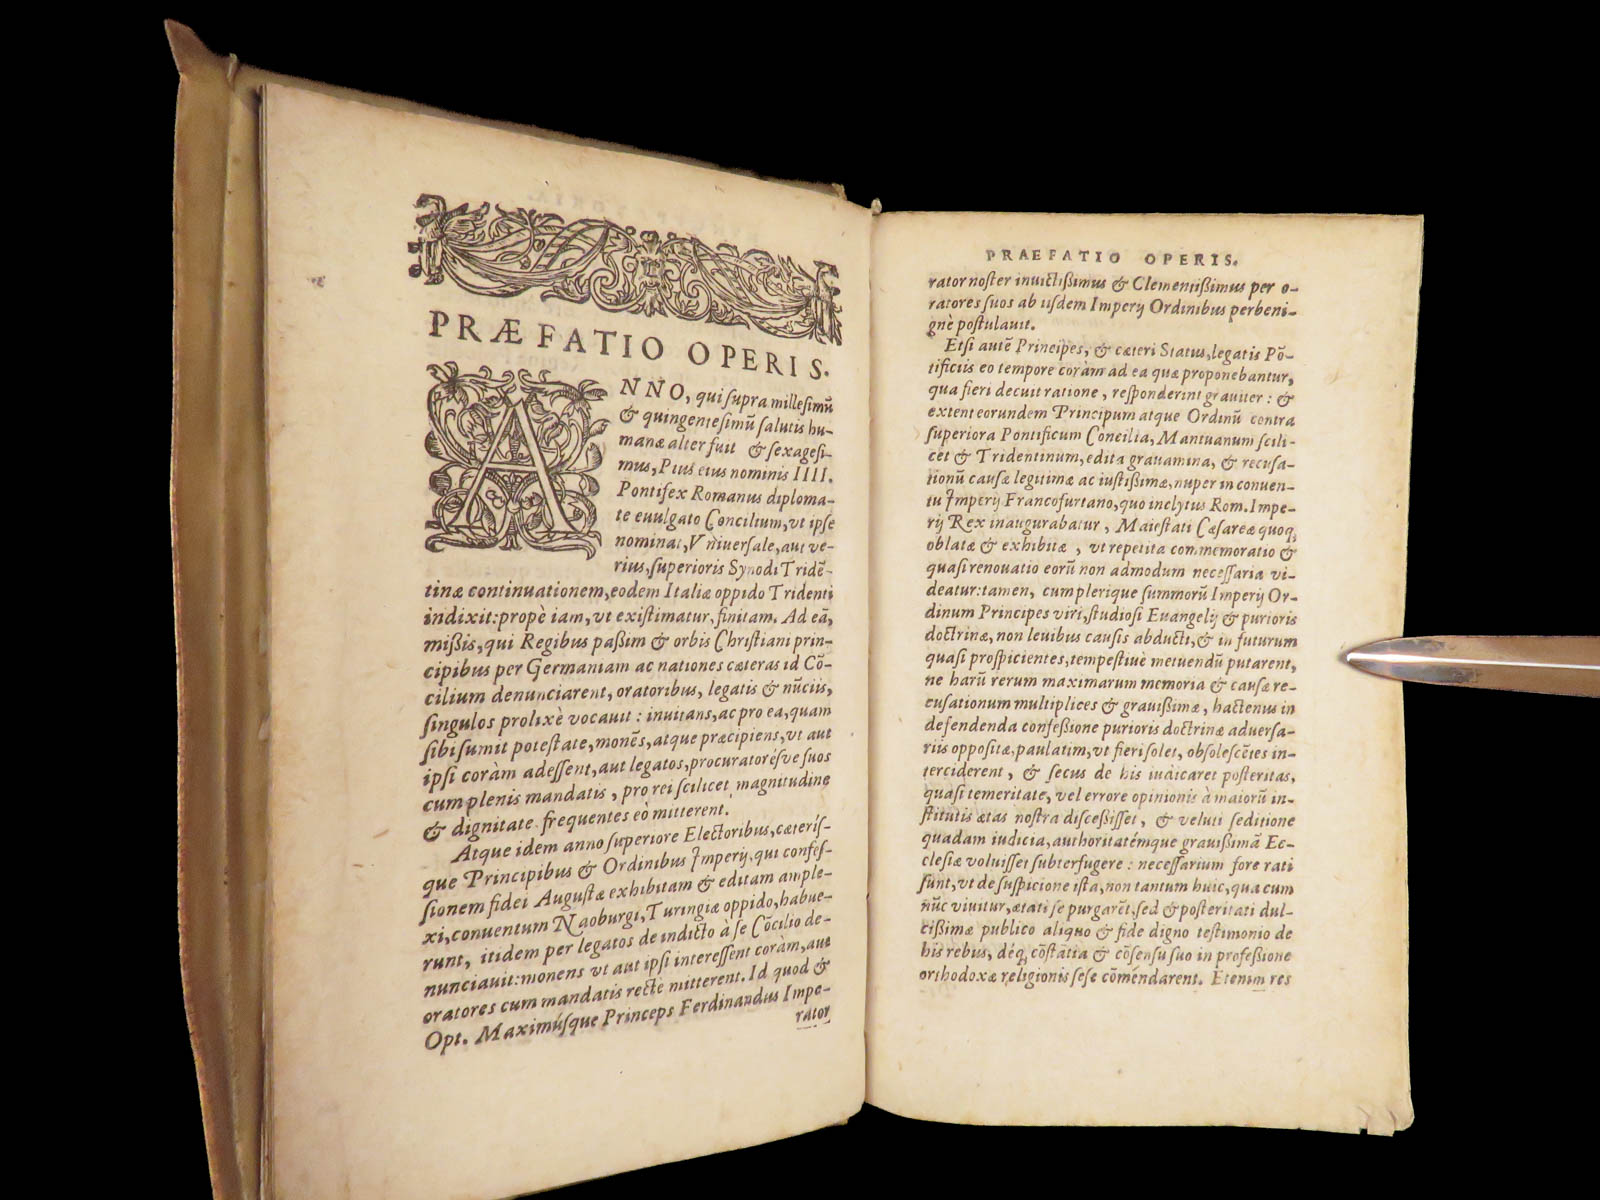 PRÆFATIO OPERIS.
ANNO, qui supra millesimũ
& quingentesimũ salutis hu-
manæ alter fuit & sexagesi-
mus, Pius eius nominis IIII.
Pontifex Romanus diploma-
te euulgato Concilium, vt ipse
nominat, Vniuersale, aut ve-
rius, superioris Synodi Tridẽ-
tinæ continuationem, eodem Italiæ oppido Tridenti
indixit: propè iam, vt existimatur, finitam. Ad eã,
mißis, qui Regibus paßim & orbis Christiani prin-
cipibus per Germaniam ac nationes cæteras id Cõ-
cilium denunciarent, oratoribus, legatis & nũciis,
singulos prolixè vocauit: inuitans, ac pro ea, quam
sibi sumit potestate, monẽs, atque præcipiens, vt aut
ipsi coràm adessent, aut legatos, procuratorésve suos
cum plenis mandatis, pro rei scilicet magnitudine
& dignitate frequentes eò mitterent.
Atque idem anno superiore Electoribus, cæteris-
que Principibus & Ordinibus Imperij, qui confes-
sionem fidei Augustæ exhibitam & editam ample-
xi, conuentum Naoburgi, Turingiæ oppido, habue-
runt, itidem per legatos de indicto à se Cõcilio de-
nunciauit: monens vt aut ipsi interessent coràm, aut
oratores cum mandatis rectè mitterent. Id quod &
Opt. Maximúsque Princeps Ferdinandus Impe-
rator
PRAEFATIO OPERIS.
rator noster inuictißimus & Clementißimus per o-
ratores suos ab iisdem Imperij Ordinibus perbeni-
gnè postulauit.
Etsi autẽ Principes, & cæteri Status, legatis Põ-
tificiis eo tempore coràm ad ea quæ proponebantur,
qua fieri decuit ratione, responderint grauiter: &
extent eorundem Principum atque Ordinũ contra
superiora Pontificum Concilia, Mantuanum scili-
cet & Tridentinum, edita grauamina, & recusa-
tionũ causæ legitimæ ac iustißimæ, nuper in conuen-
tu Imperij Francofurtano, quo inclytus Rom. Impe-
rij Rex inaugurabatur, Maiestati Cæsareæ quoq;
oblatæ & exhibitæ, vt repetita commemoratio &
quasi renouatio eorũ non admodum necessaria vi-
deatur: tamen, cum plerique summorũ Imperij Or-
dinum Principes viri, studiosi Euangelij & purioris
doctrinæ, non leuibus causis abducti, & in futurum
quasi prospicientes, tempestiuè metuendũ putarent,
ne harũ rerum maximarum memoria & causæ re-
cusationum multiplices & grauißimæ, hactenus in
defendenda confeßione purioris doctrinæ aduersa-
riis oppositæ, paulatim, vt fieri solet, obsolescẽtes in-
terciderent, & secus de his iudicaret posteritas,
quasi temeritate, vel errore opinionis à maiorũ in-
stitutis ætas nostra disceßisset, & veluti seditione
quadam iudicia, authoritatémque grauißimã Ec-
clesiæ voluisset subterfugere: necessarium fore rati
sunt, vt de suspicione ista, non tantum huic, qua cum
nũc viuitur, ætati se purgarẽt, sed & posteritati dul-
cißimæ publico aliquo & fide digno testimonio de
his rebus, déq; cõstãtia & cõsensu suo in profeßione
orthodoxæ religionis sese cõmẽdarent. Etenim res